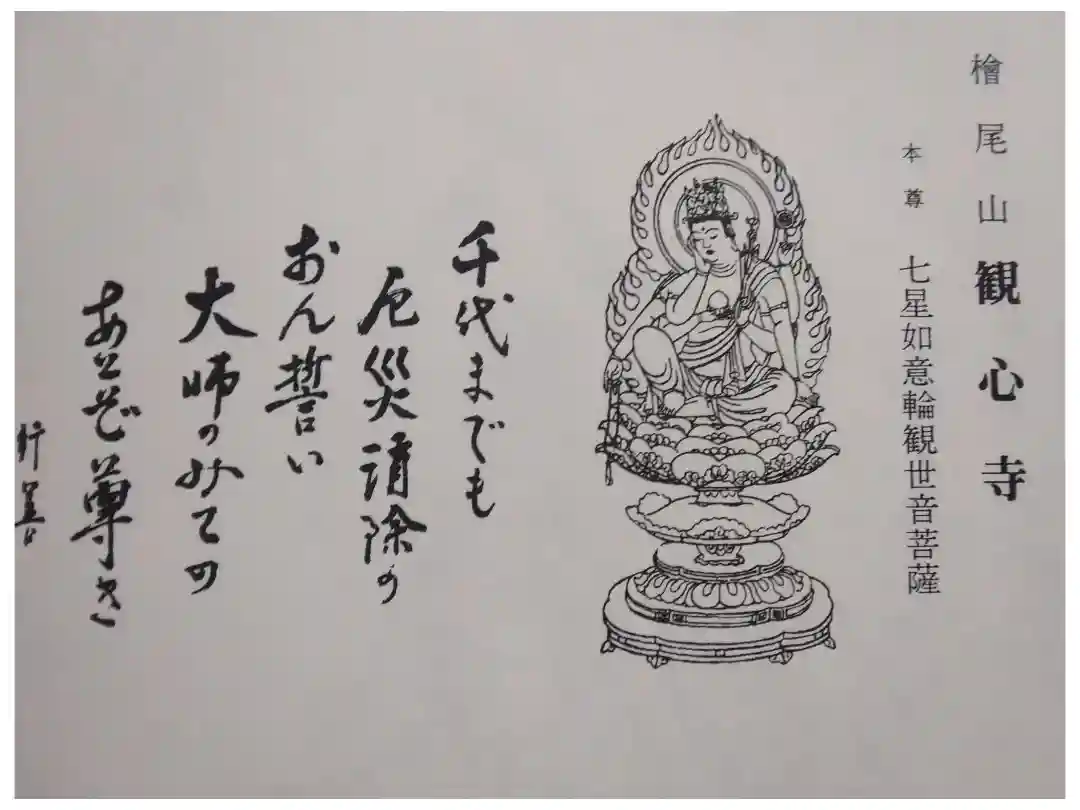 檜尾山観心寺
本尊 七星如意輪観世音菩薩
千代までも
厄災消除の
おん誓い
大師のみての
あとぞ尊き
行善